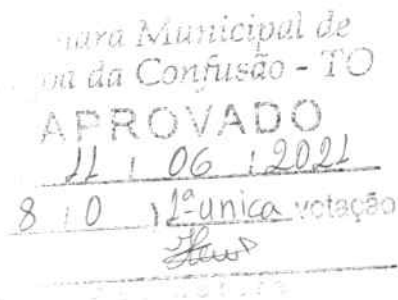 Municipal de
da Confusão - TO
APROVADO
11 / 06 / 2021
8 / 0 ) 1ª unica votação